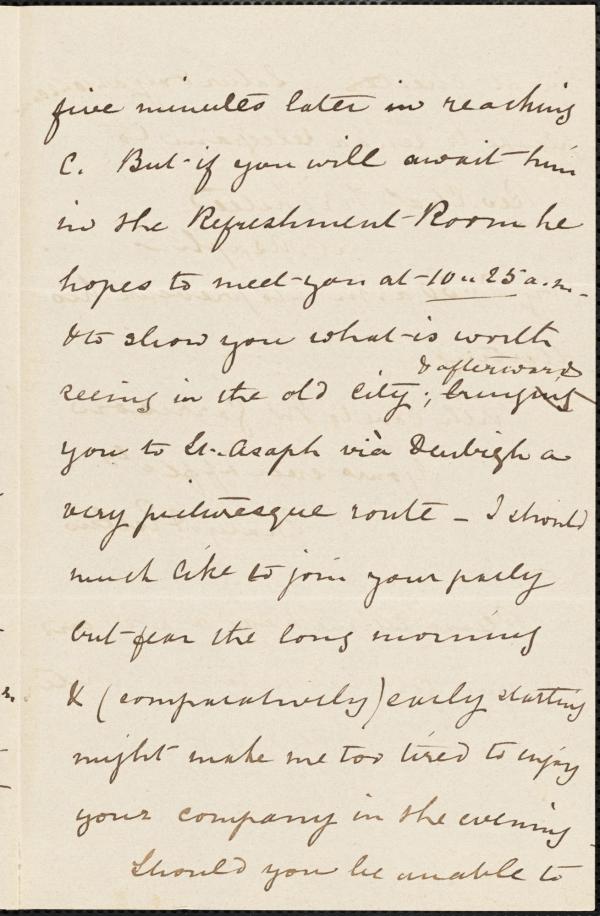 five minutes later in reaching
C. But if you will await him
in the Refreshment Room he
hopes to meet you at 10 " 25 a.m.
& to show you what is worth
& afterwards
seeing in the old city; bringing
you to St. Asaph viâ Denbigh a
very picturesque route - I should
much like to join your party
but fear the long morning
& (comparatively) early starting
might make me too tired to enjoy
your company in the evening
Should you be unable to